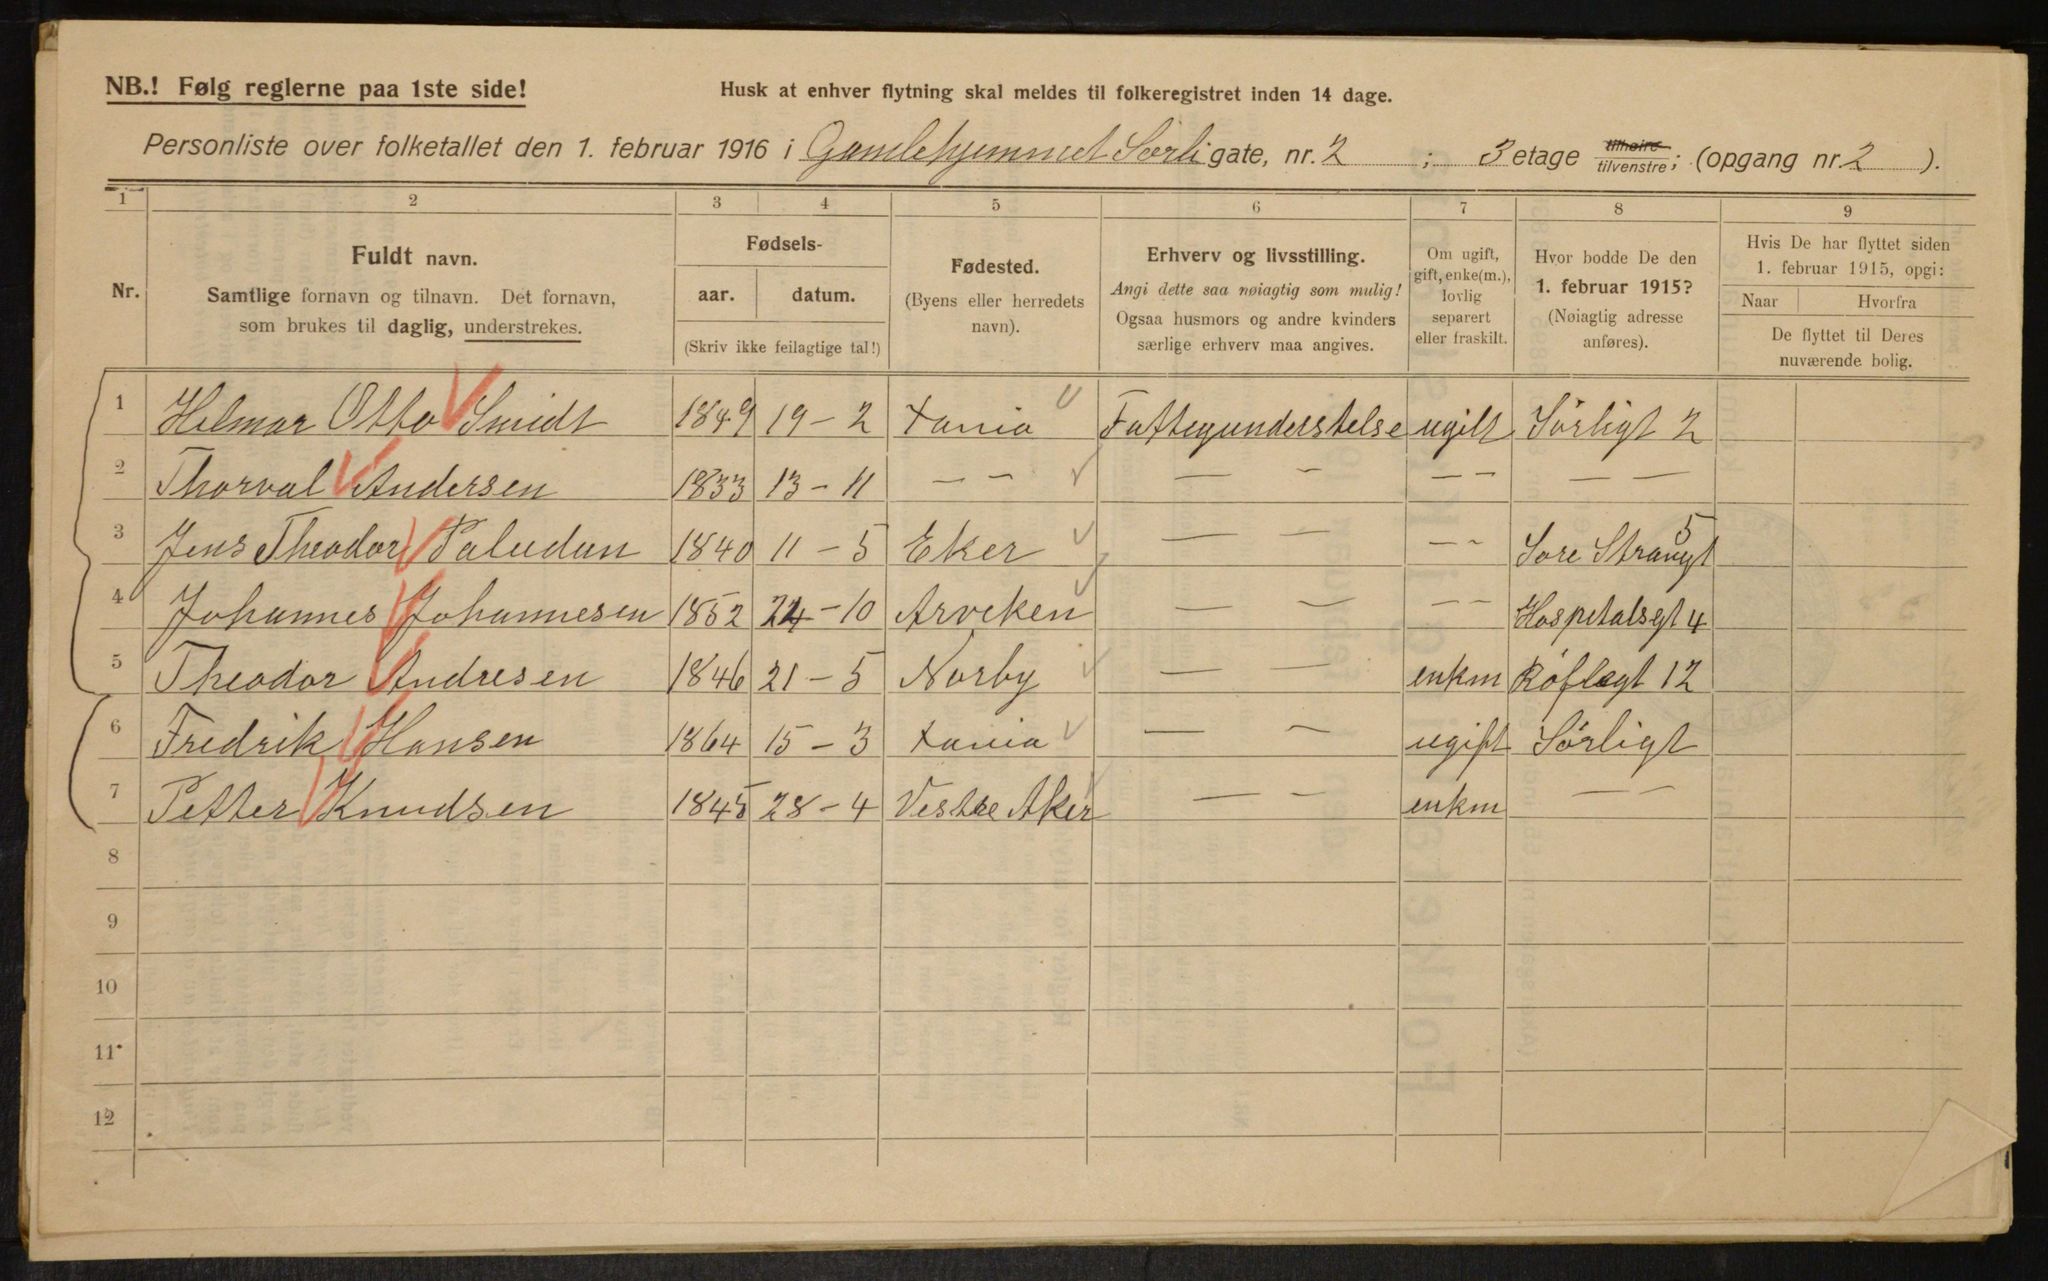 NB.! Følg reglerne paa 1ste side!
Husk at enhver flytning skal meldes til folkeregistret inden 14 dage.
Personliste over folketallet den 1. februar 1916 i Gamlehjemmet Sørli gate, nr. 2 ; 3 etage tilhøire tilvenstre; (opgang nr. 2 ).
1 2 3 4 5 6 7 8 9
Nr.
Fuldt navn.
Samtlige fornavn og tilnavn. Det fornavn,
som brukes til daglig, understrekes.
Fødsels-
aar. datum.
(Skriv ikke feilagtige tal!)
Fødested.
(Byens eller herredets
navn).
Erhverv og livsstilling.
Angi dette saa nøiagtig som mulig!
Ogsaa husmors og andre kvinders
særlige erhverv maa angives.
Om ugift,
gift, enke(m.),
lovlig
separert
eller fraskilt.
Hvor bodde De den
1. februar 1915?
(Nøiagtig adresse
anføres).
Hvis De har flyttet siden
1. februar 1915, opgi:
Naar Hvorfra
De flyttet til Deres
nuværende bolig.
1 Hilmar Otto Smidt 1849 19 - 2 Xania Fattigunderstelse ugift Sørligt 2
2 Thorval Andersen 1833 13 - 11 — — — — — — — —
3 Jens Theodor Paludan 1840 11 - 5 Eker — — — — Sore Strangt 5
4 Johannes Johannesen 1852 24 - 10 Arveken — — — — Hospetalsgt 4
5 Theodor Andresen 1846 21 - 5 Norby — — enkm 12
6 Fredrik Hansen 1864 15 - 3 Xania — — ugift Sørligt
7 Petter Knudsen 1845 28 - 4 Vestre Aker — — enkm — —
8
9
10
11
12